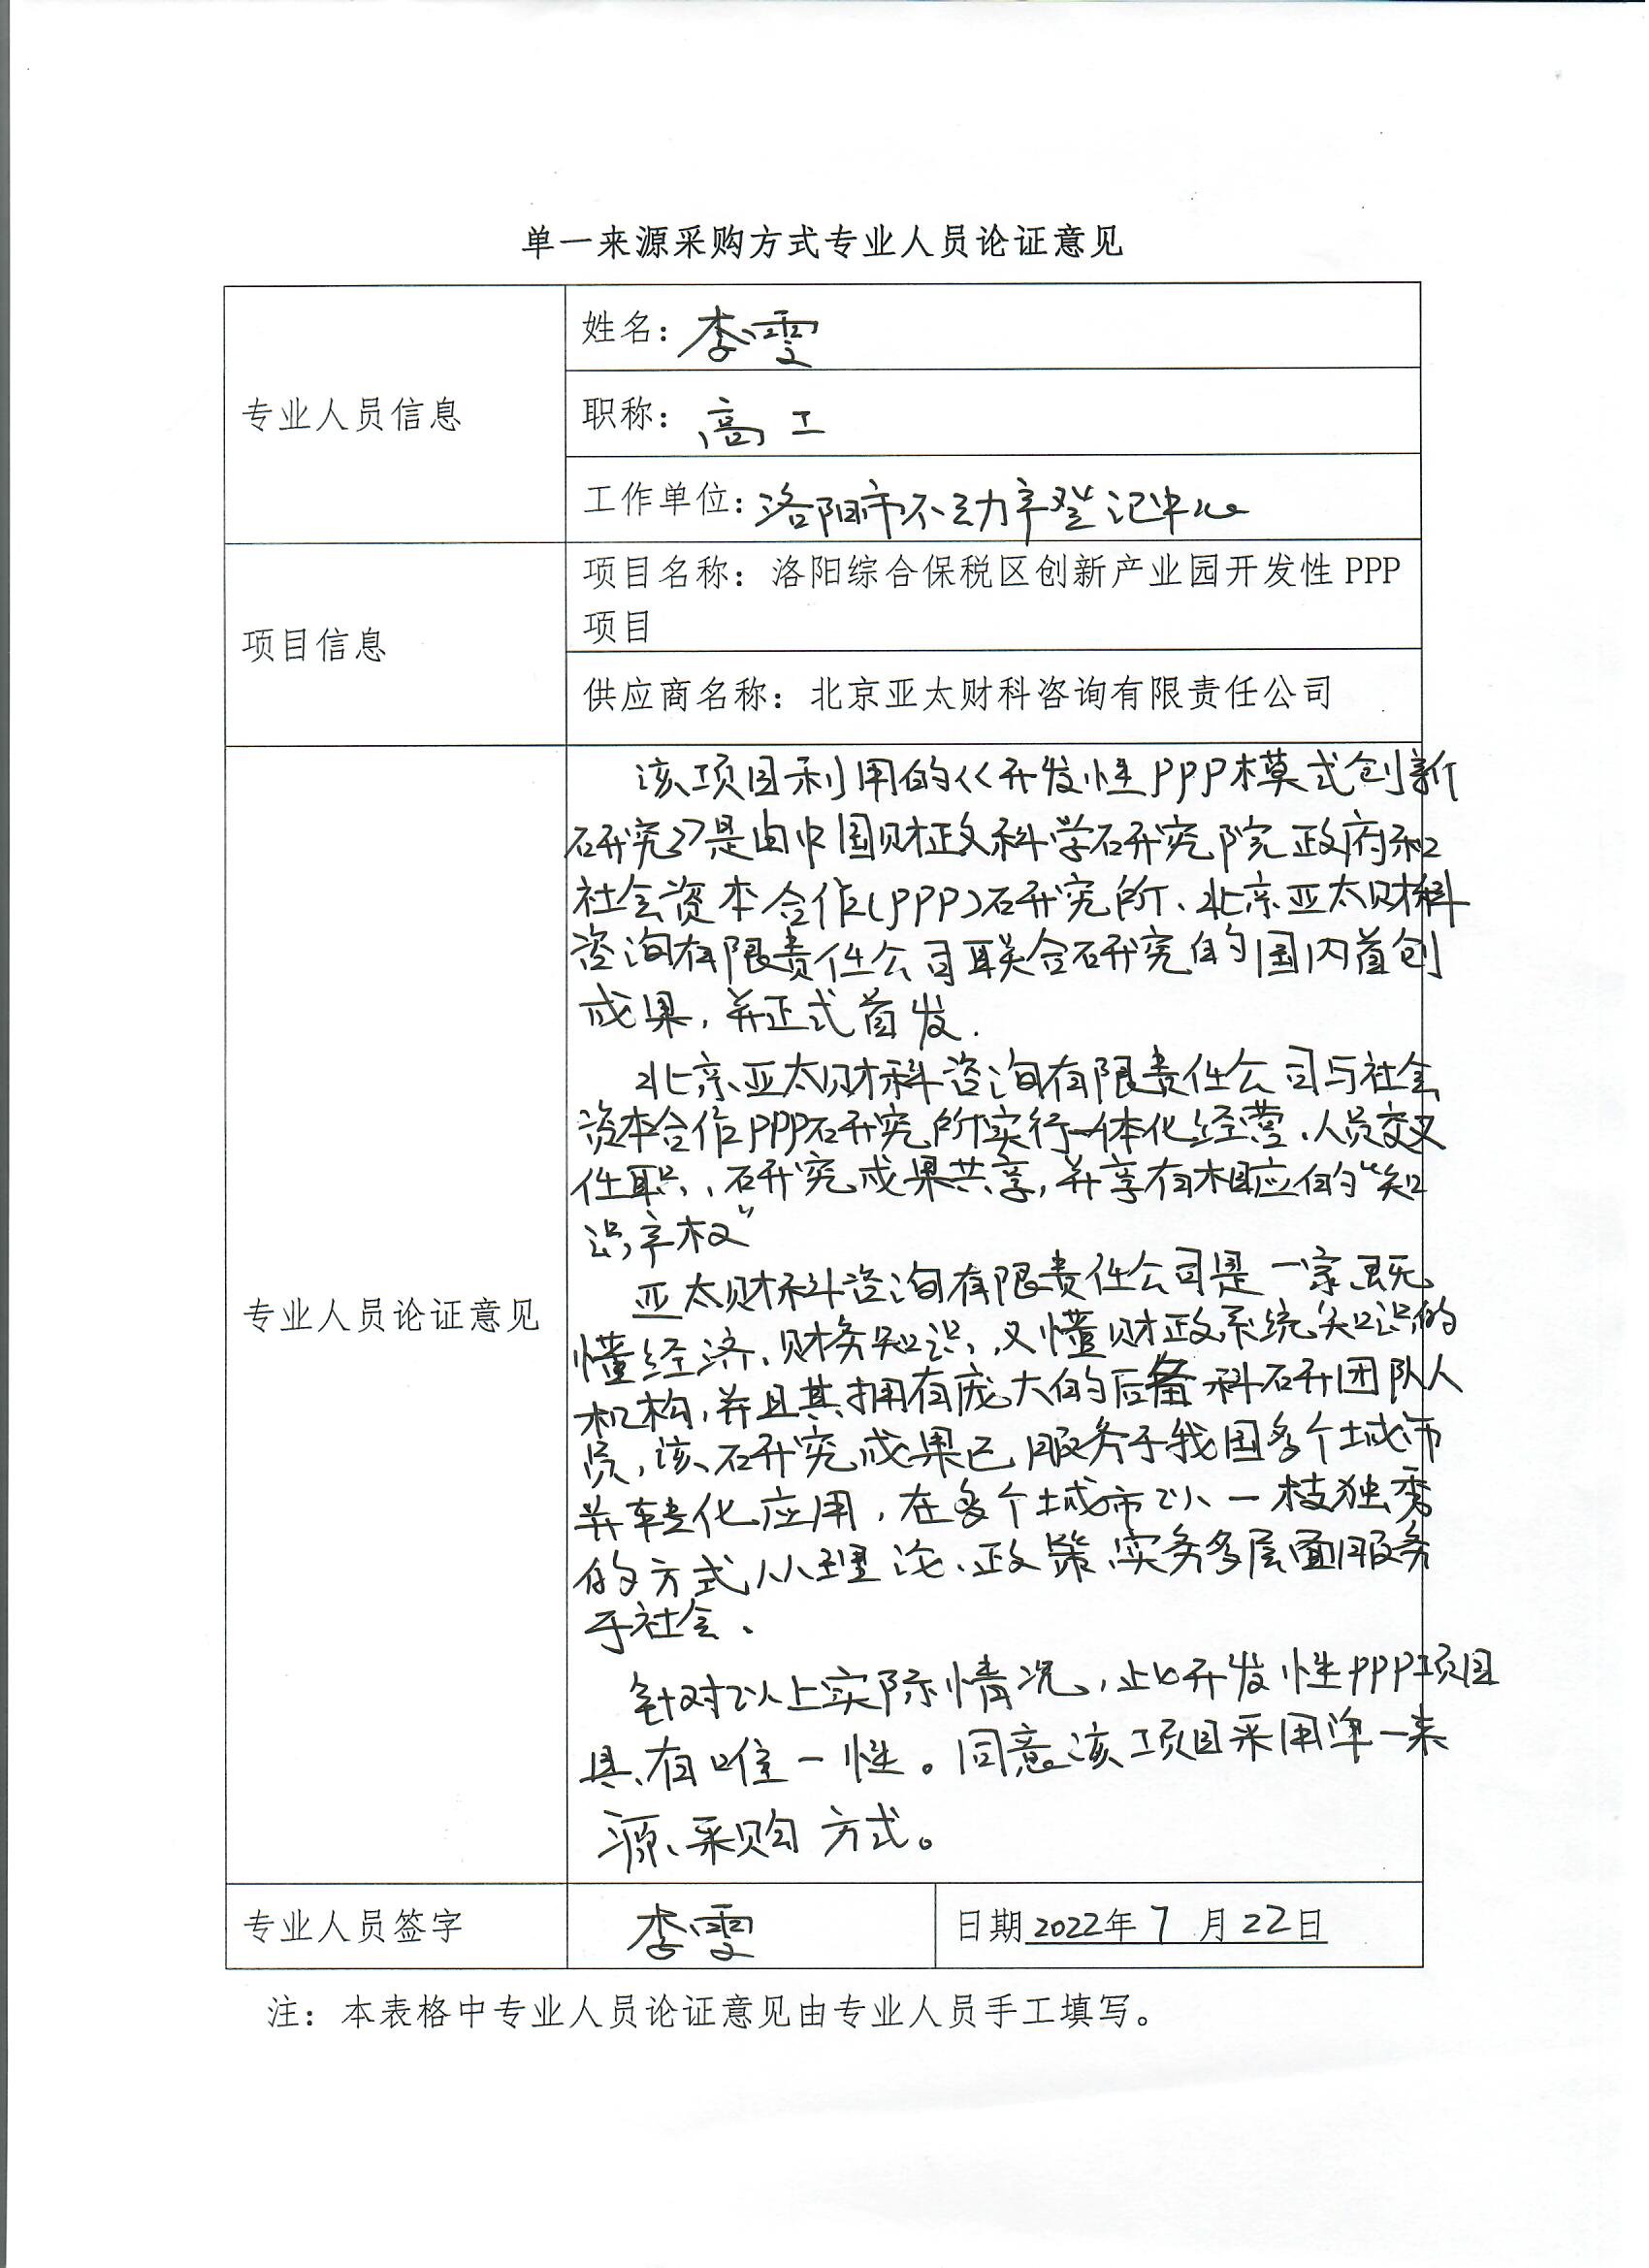 单一来源采购方式专业人员论证意见
专业人员信息
姓名：李雯
职称：高工
工作单位：洛阳市不动产登记中心
项目信息
项目名称：洛阳综合保税区创新产业园开发性 PPP
项目
供应商名称：北京亚太财科咨询有限责任公司
专业人员论证意见
该项目利用的《开发性PPP模式创新
研究》是由中国财政科学研究院政府和
社会资本合作(PPP)研究所、北京亚太财科
咨询有限责任公司联合研究的国内首创
成果，并正式首发.
北京亚太财科咨询有限责任公司与社会
资本合作PPP研究所实行一体化经营、人员交叉
任职、研究成果共享，并享有相应的“知
识产权”
亚太财科咨询有限责任公司是一家既
懂经济、财务知识，又懂财政系统知识的
机构，并且其拥有庞大的后备科研团队人
员，该研究成果已服务于我国多个城市
并转化应用，在多个城市以一枝独秀
的方式从理论、政策、实务多层面服务
于社会.
针对以上实际情况，此开发性PPP项目
具有唯一性。同意该项目采用单一来
源采购方式。
专业人员签字
李雯
日期 2022年 7 月 22日
注：本表格中专业人员论证意见由专业人员手工填写。